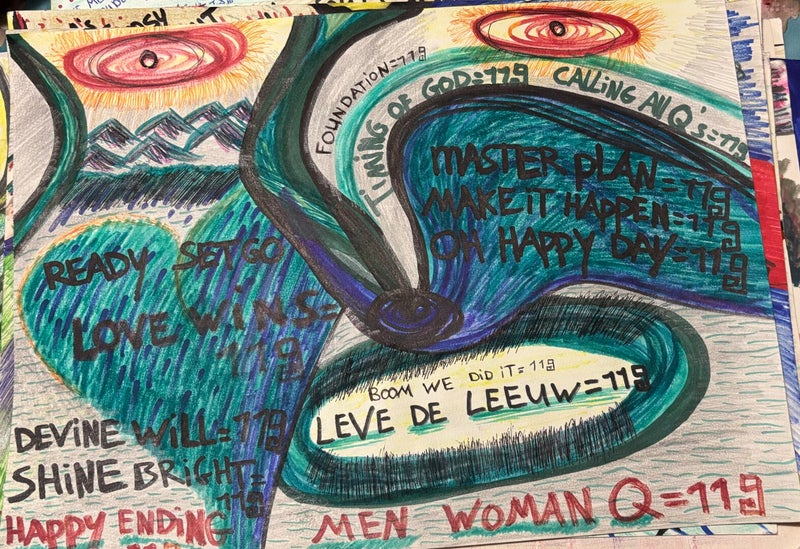 FOUNDATION=119
TIMING OF GOD=119 CALLING All Q's=119
MASTER PLAN=119
MAKE IT HAPPEN=119
OH HAPPY DAY=119
READY SET GO
LOVE WINS=
119
BOOM WE DID IT=119
LEVE DE LEEUW=119
DEVINE WILL=119
SHINE BRIGHT=
119
HAPPY ENDING
MEN WOMAN Q=119